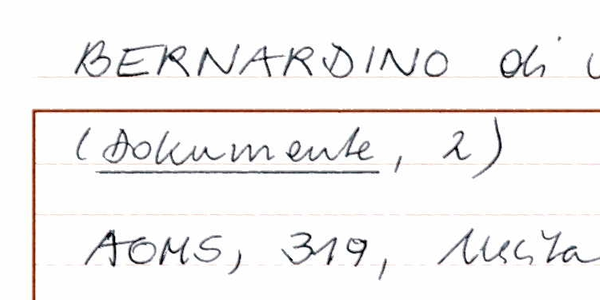 BERNARDINO di
(Dokumente, 2)
AOMS, 319, Uscita